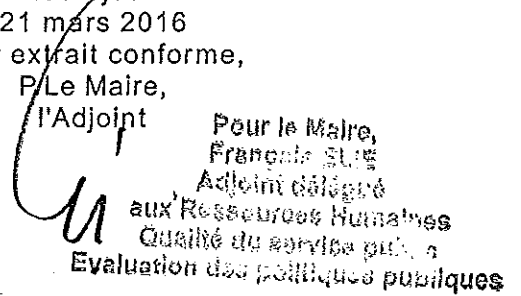 21 mars 2016
extrait conforme,
P/Le Maire,
l'Adjoint
Pour le Maire,
François
Adjoint délégué
aux Ressources Humaines
Qualité du service
Evaluation des politiques publiques